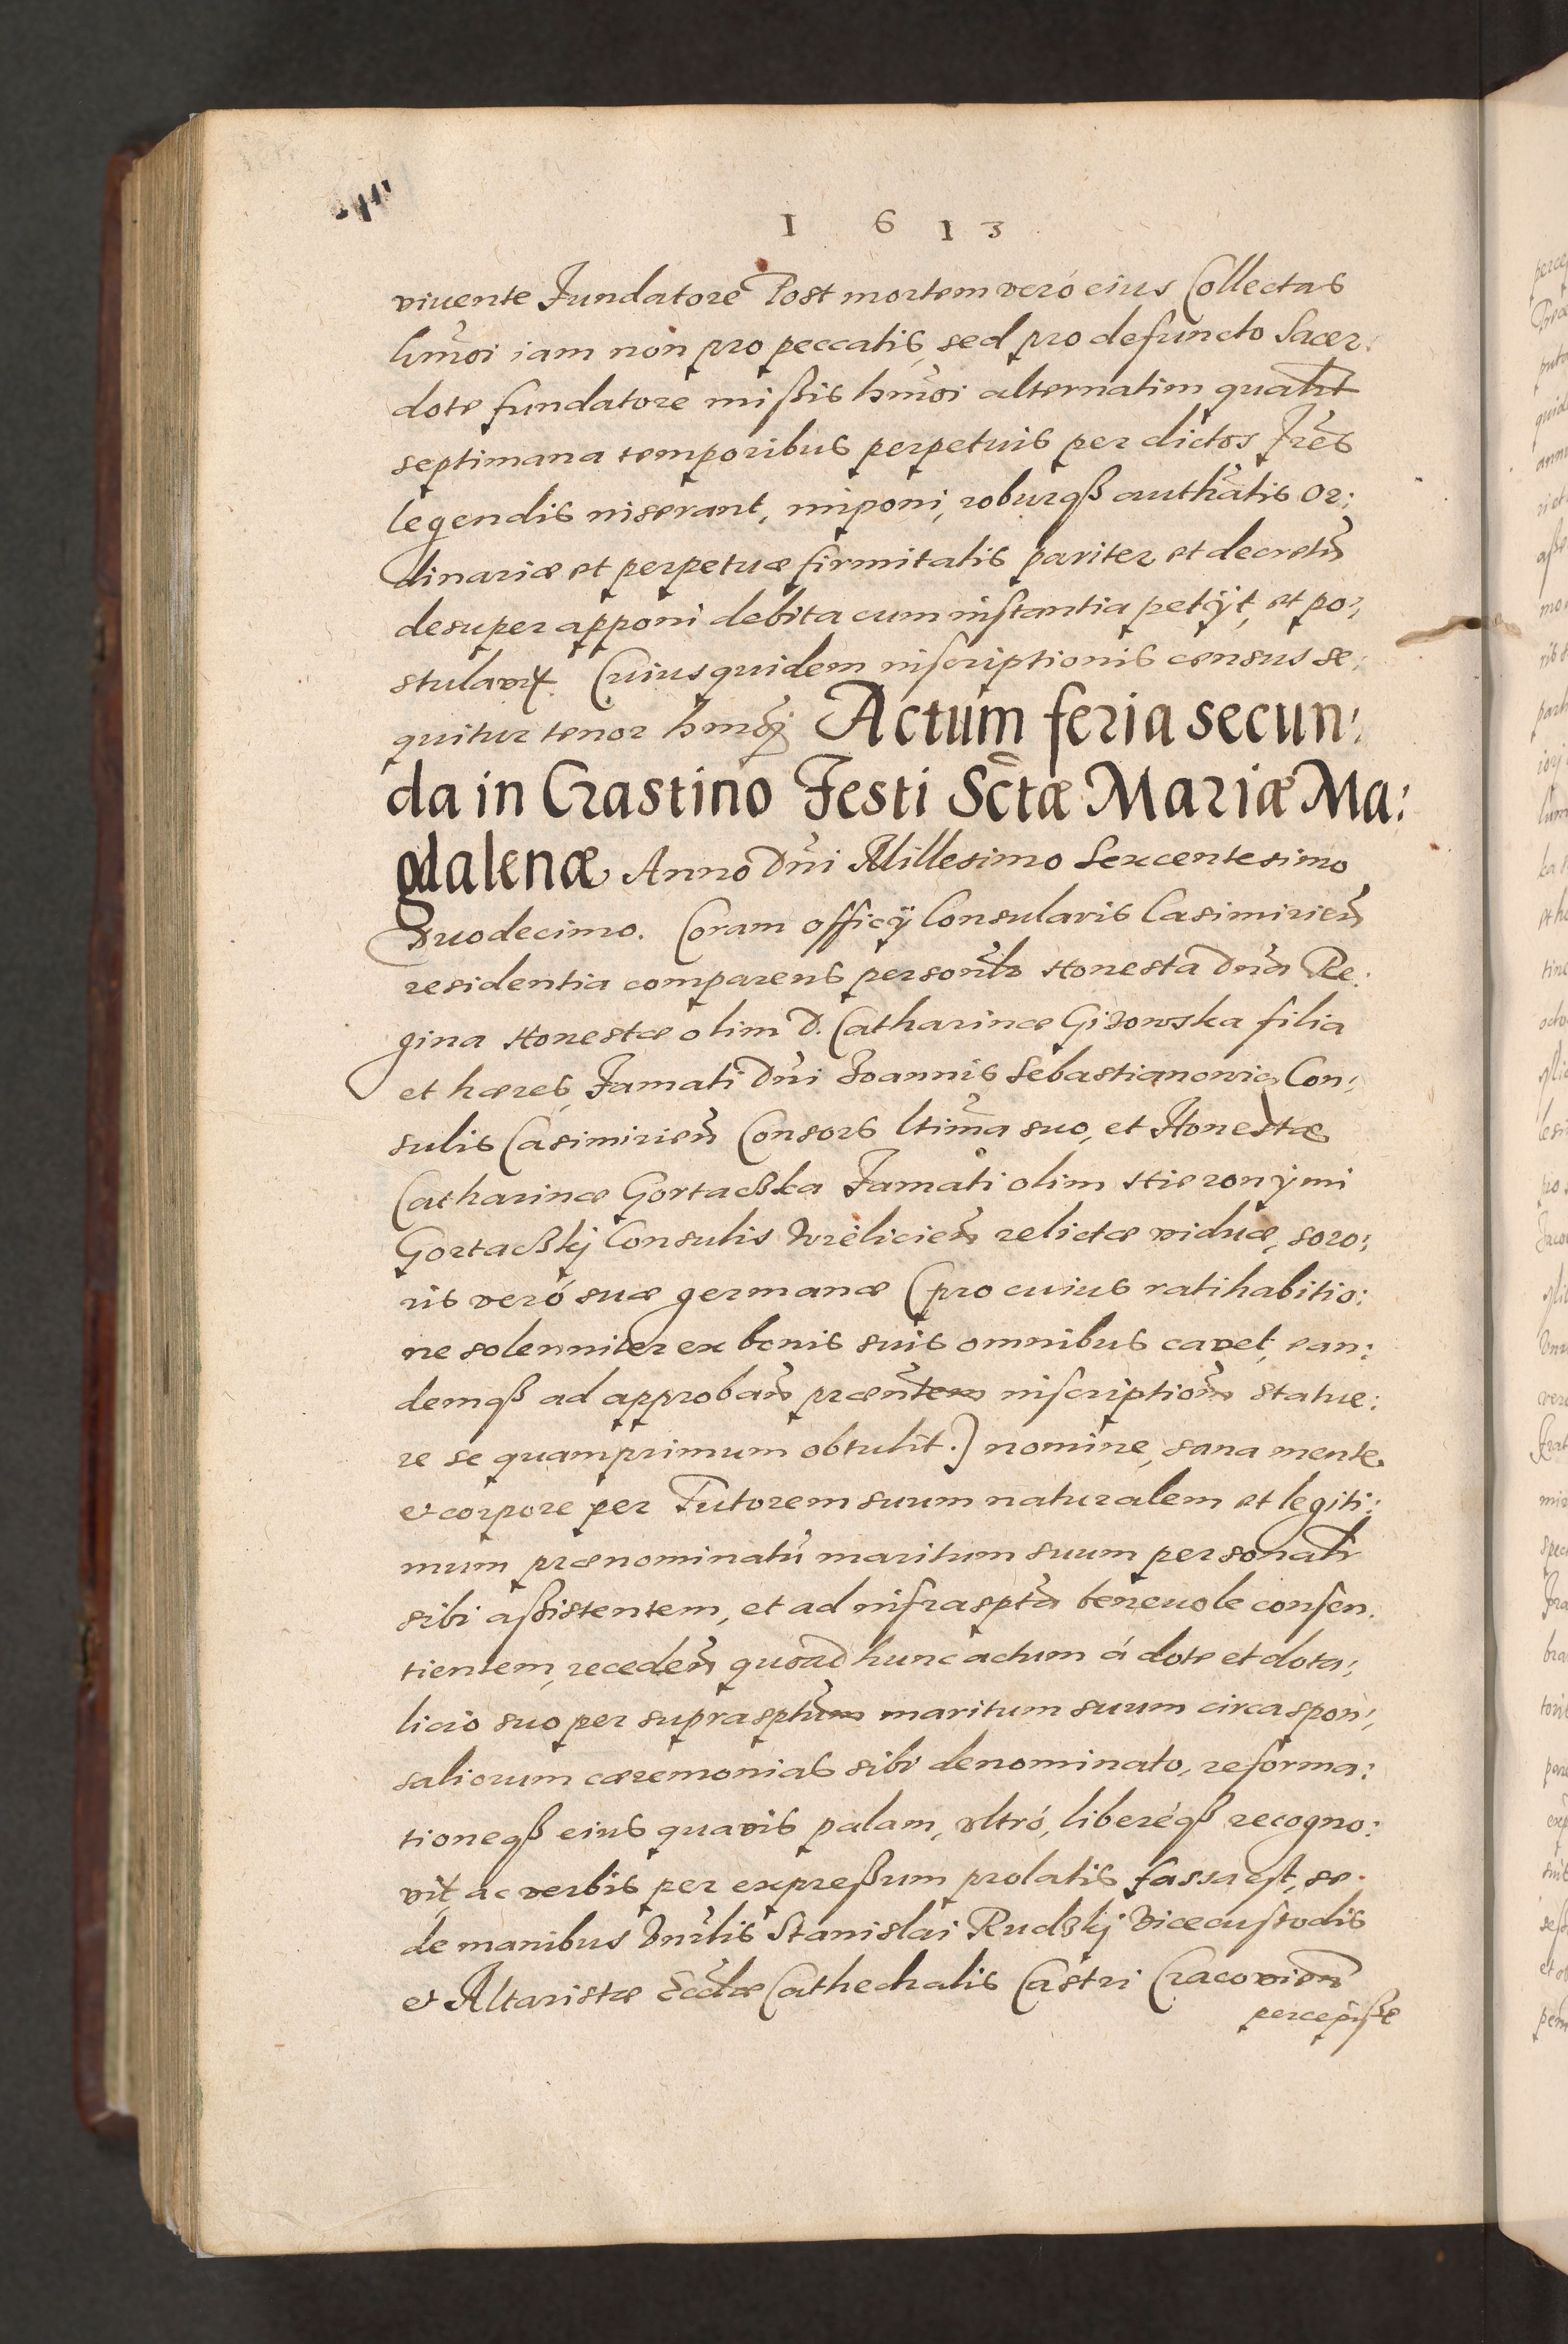 1 6 1 3
viuente Fundatore Post mortem veró eius Collectas
hmõi iam non pro peccatis, sed pro defuncto Sacer:
dote fundatore mißis hmõi alternatim qualit
septimana temporibus perpetuis per dictos Fres
legendis niserant, imponi, roburqß authatis Or:
dinariæ et perpetuæ firmitatis pariter et decretũ
desuper apponi debita cum instantia petÿt, et po:
stulavit. Cuius quidem inscriptionis census se:
quitur tenor hmõi Actum feria secun:
da in Crastino Festi Sctæ Mariæ Ma:
gdalenæ Anno Dñi Millesimo Sexcentesimo
Duodecimo. Coram officÿ Consularis Casimirien̄
residentia comparens personlr Honesta Dña Re:
gina Honestæ olim D. Catharinæ Gizowska filia
et hæres, Famati Dñi Joannis Sebastianowic Con:
sulis Casimirien̄ Consors ltima suo, et Honestæ
Catharinæ Gortacßka Famati olim Hieronÿmi
Gortacßkj Consulis Wieliciен̄ relictæ viduæ, soro:
ris veró suæ germanæ (pro cuius ratihabitio:
ne solenniter ex bonis suis omnibus cavet, ean:
demqß ad approban̄ præntem inscription̄ statue:
re se quamprimum obtulit.) nomine, sana mente
et corpore per Tutorem suum naturalem et legiti:
mum prænominatũ maritum suum personalr
sibi aßistentem, et ad infrasptã beneuole consen:
tientem, receden̄ quoad hunc actum á dote et dota:
licio suo per suprasptum maritum suum circa spon:
saliorum cæremonias sibi denominato, reforma:
tioneqß eius quavis palam, vltró, liberéqß recogno:
vit, ac verbis per expreßum prolatis fassa est, se
de manibus Vnrlis Stanislai Rudzkj Vicecustodis
et Altaristæ Ecclæ Cathedralis Castri Cracovien̄
percepiße